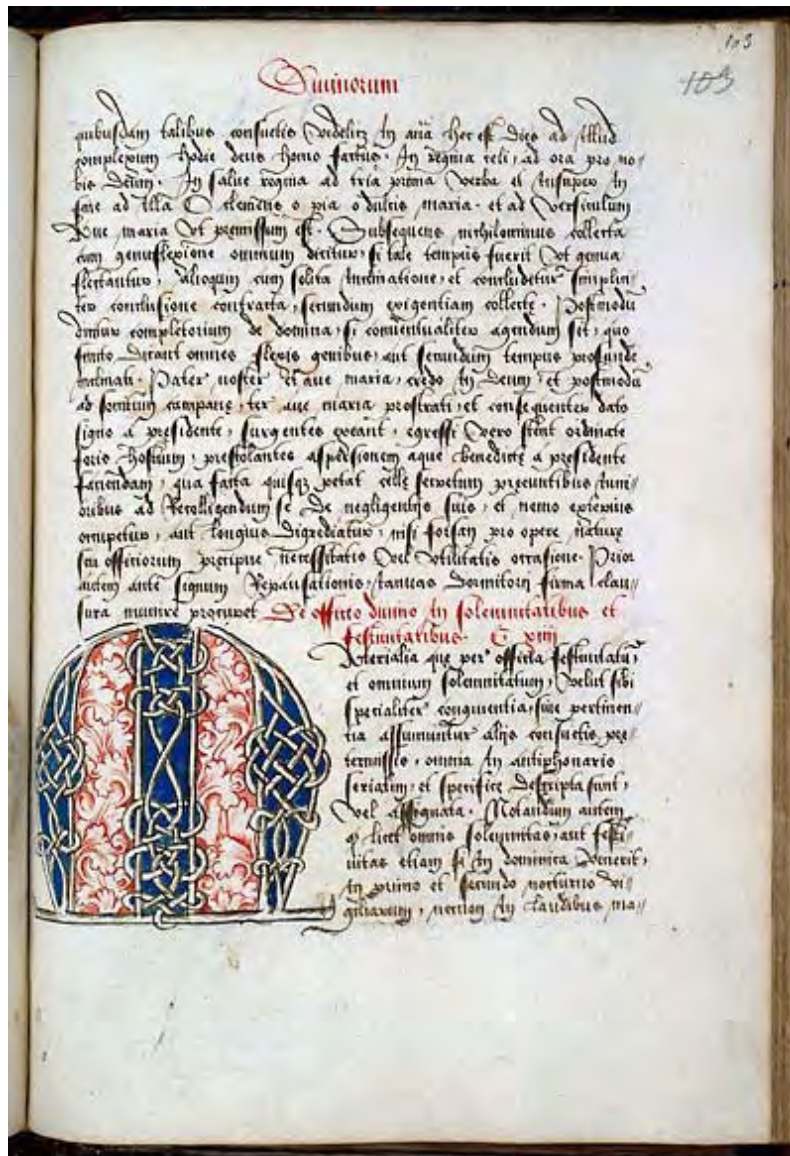 103
103
Diuinorum
quibusdam talibus consuetis Videlicet In aña hec est Dies ad Illud
complexium hodie deus homo factus. In regina celi, ad ora pro no//
bis deum. In salue regina ad tria prima Verba et Insuper In
fine ad Illa O clemens o pia o dulcis maria. et ad Versiculum
Aue maria Vt premissum est. Subsequens nichilominus collecta
cum genuflexione omnium dicitur, si tale tempus fuerit Vt genua
flectantur, alioquin cum solita Inclinatione, et concludetur simplici//
ter conclusione contracta, secundum exigentiam collecte. Postmodũ
dicitur completorium de domina, si conuentualiter agendum sit, quo
finito Dicant omnes flexis genibus, aut secundum tempus profunde
inclinati. Pater noster et aue maria, credo In deum, et postmodũ
ad sonitum campane, ter aue maria prostrati, et consequenter dato
signo a presidente, surgentes exeant, egressi Vero stent ordinate
foris hostium, prestolantes aspersionem aque benedicte a presidente
faciendam, qua facta quisq petat celle secretum precuntibus Iuni//
oribus ad Recolligendum se De negligentijs suis, et nemo exterius
occupetur, aut longius Digrediatur, nisi forsan pro opere nature
seu officiorum precipue necessitatis Vel Vtilitatis occasione. Prior
autem ante signum Repausationis, Ianuas Dormitorij firma clau//
sura munire procuret De officio diuino In solemnitatibus et
festiuitatibus. C xiiij
Materialia que per officia festiuitatũ,
et omnium solemnitatum, Velut sibi
specialiter congruentia, siue pertinen//
tia assumuntur alijs consuetis pre//
termissis, omnia In antiphonario
seriatim, et specifice Descripta sunt,
Vel assignata. Notandum autem
q licet omnis solemnitas, aut festi//
uitas etiam si In dominica Venerit,
In primo et secundo nocturno Vi//
giliarum, necnon In laudibus ma//